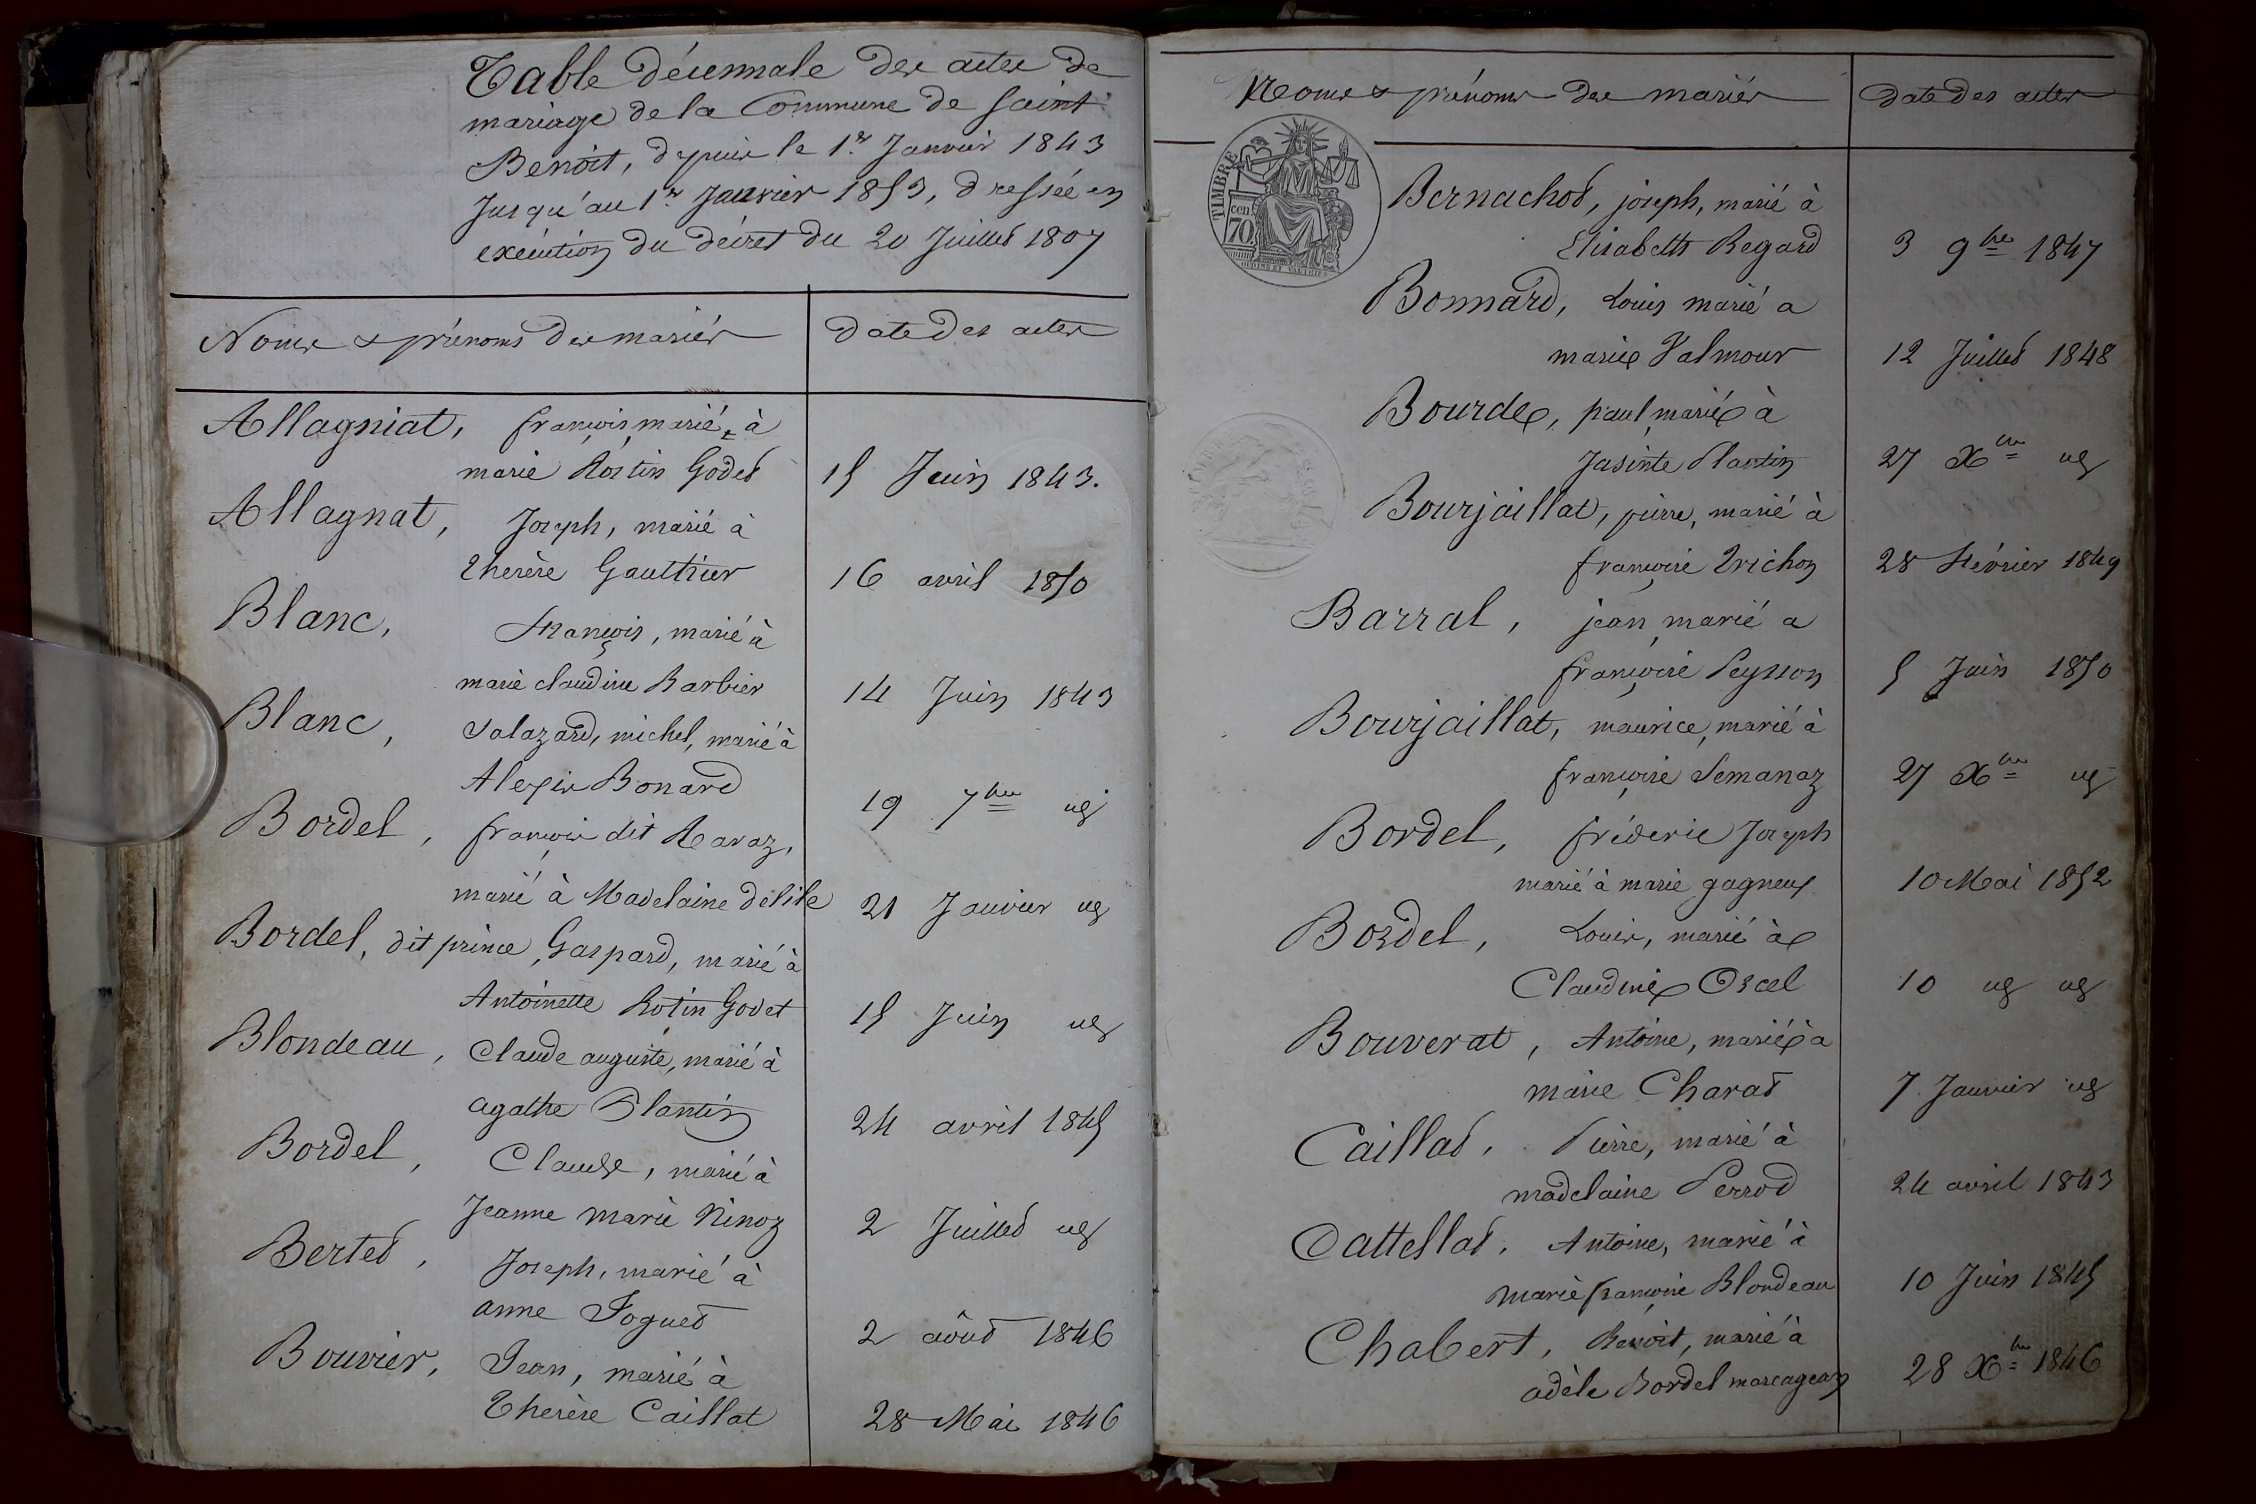 Table décennale des actes de
mariage de la Commune de Saint
Benoit, depuis le 1er Janvier 1843
Jusqu'au 1er Janvier 1853, dressée en
exécution du décret du 20 Juillet 1807
Noms & prénoms des mariés
date des actes
Allagniat, françois, marié à
marie Rostin Godet 15 Juin 1843.
Allagnat, Joseph, marié à
therèse Gauthier 16 avril 1850
Blanc, françois, marié à
marie claudine Barbier 14 Juin 1843
Blanc, Salazard, michel, marié à
Alexis Bonard 19 7bre id
Bordel, françois dit Ravaz,
marié à Madelaine delile 21 Janvier id
Bordel, dit prince, Gaspard, marié à
Antoinette Rotin Godet 15 Juin id
Blondeau, Claude auguste, marié à
agathe Plantin 24 avril 1845
Bordel, Claude, marié à
Jeanne marie Ninoz 2 Juillet id
Bertet, Joseph, marié à
anne Joguet 2 aôut 1846
Bouvier, Jean, marié à
Therèse Caillat 28 Mai 1846
Noms & prénoms des mariés
date des actes
TIMBRE
70 cen
Bernachot, joseph, marié à
Elisabeth Regard 3 9bre 1847
Bonnard, Louis marié a
marie Valmour 12 Juillet 1848
Bourde, paul, marié à
Jasinte Plantin 27 Xbre id
Bourjaillat, pierre, marié à
françoise Trichon 28 Février 1849
Barral, jean marié a
françoise Peysson 5 Juin 1850
Bourjaillat, maurice, marié à
françoise Semanaz 27 Xbre id
Bordel, fréderic Joseph
marié à marie gagneux 10 Mai 1852
Bordel, Louis, marié à
Claudine Orcel 10 id id
Bouverat, Antoine, marié à
marie Charat 7 Janvier id
Caillat, Pierre, marié à
madelaine Perrod 24 avril 1843
Cattellat, Antoine, marié à
marie françoise Blondeau 10 Juin 1845
Chabert, Benoit, marié à
adèle Bordel 28 Xbre 1846